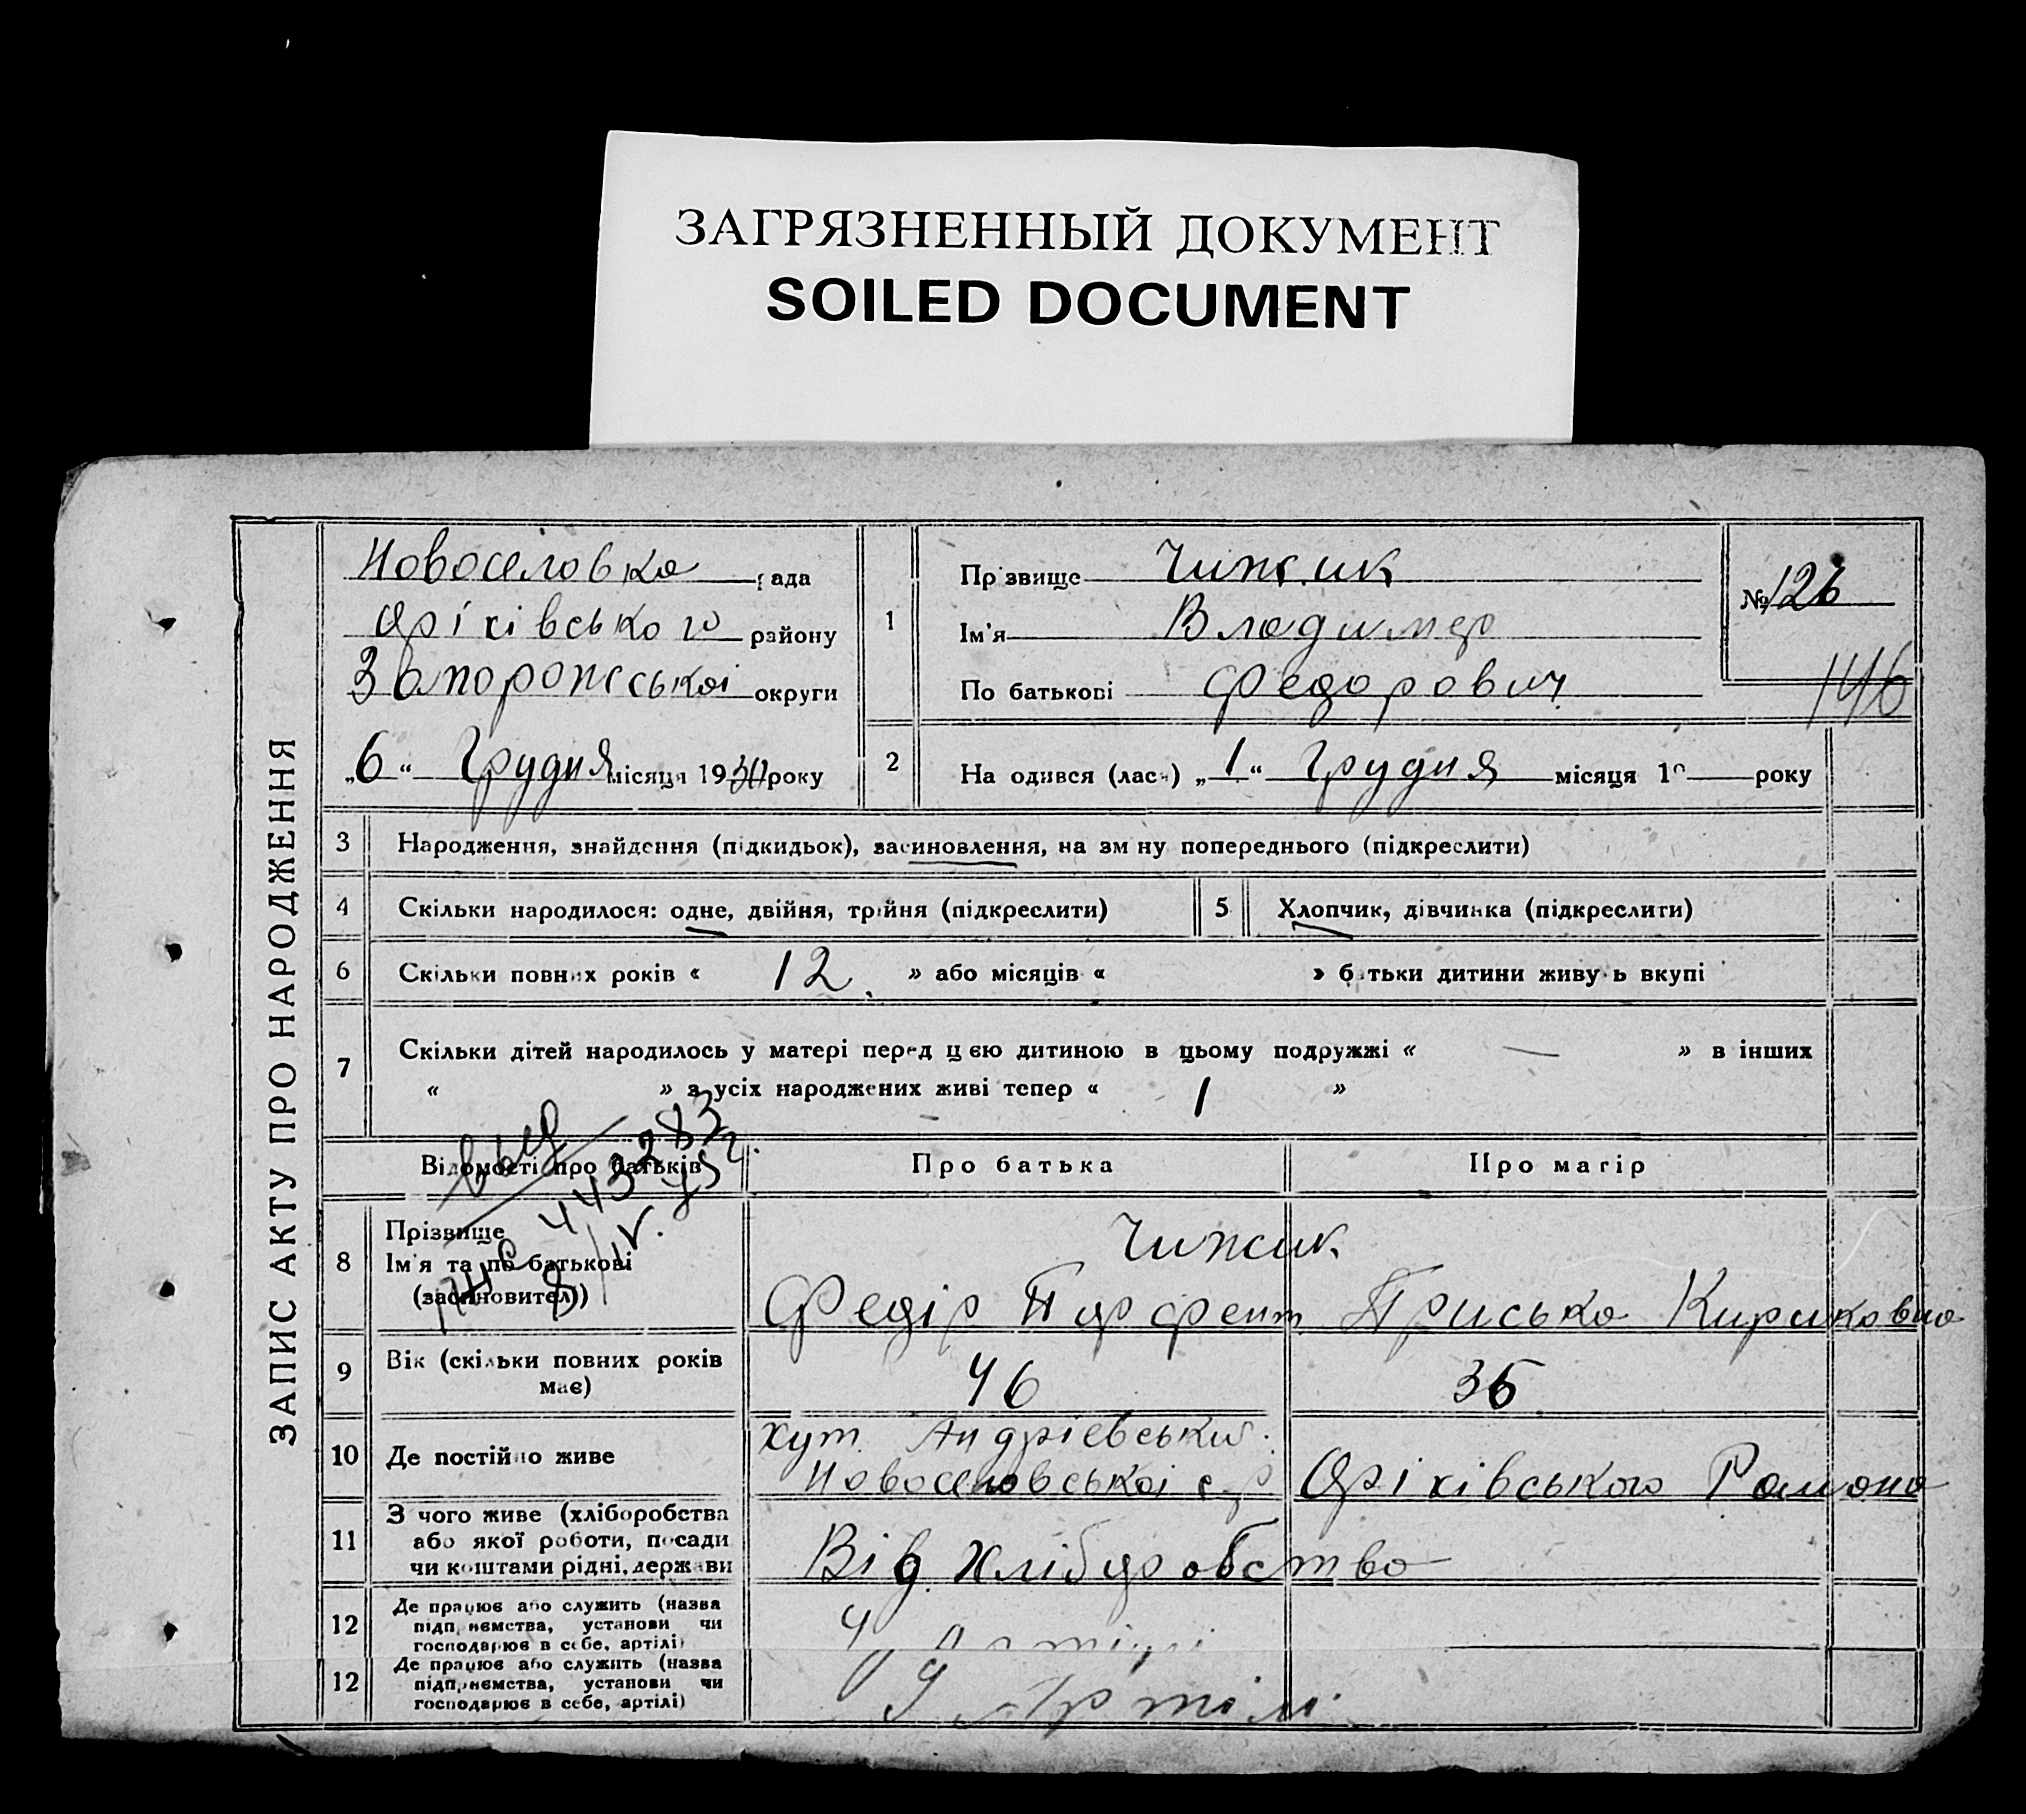 ЗАГРЯЗНЕННЫЙ ДОКУМЕНТ
SOILED DOCUMENT
ЗАПИС АКТУ ПРО НАРОДЖЕННЯ
Новоселовка рада
Оріхівського району
Запорожської округи
„6“ Грудня місяця 1930 року
1
Прізвище Чижик
Ім'я Владимер
По батькові Федорович
№ 126
146
2 На одився (лась) „1“ Грудня місяця 19 року
3 Народження, знайдення (підкидьок), засиновлення, на зміну попереднього (підкреслити)
4 Скільки народилося: одне, двійня, трійня (підкреслити)
5 Хлопчик, дівчинка (підкреслити)
6 Скільки повних років « 12 » або місяців « » батьки дитини живуть вкупі
7 Скільки дітей народилось у матері перед цією дитиною в цьому подружжі « — » в інших
« » з усіх народжених живі тепер « 1 »
Відомості про батьків Про батька Про матір
8 Прізвище
Ім'я та по батькові
(засиновителі)
Чижик
Федір Парфент Приська Кириковна
9 Вік (скільки повних років
має)
46 36
10 Де постійно живе
хут. Андріевський
Новоселовської с-р Оріхівського Району
11 З чого живе (хліборобства
або якої роботи, посади
чи коштами рідні, держави
Від хліборобства
12 Де працює або служить (назва
підприємства, установи чи
господарює в себе, артілі)
12 Де працює або служить (назва
підприємства, установи чи
господарює в себе, артілі)
У Артілі